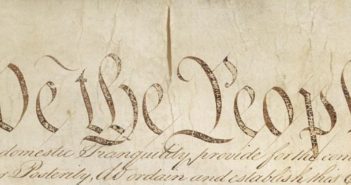 We the Peopl
domestic Tranquility, provide for the com
r Posterity, do ordain and establish this C